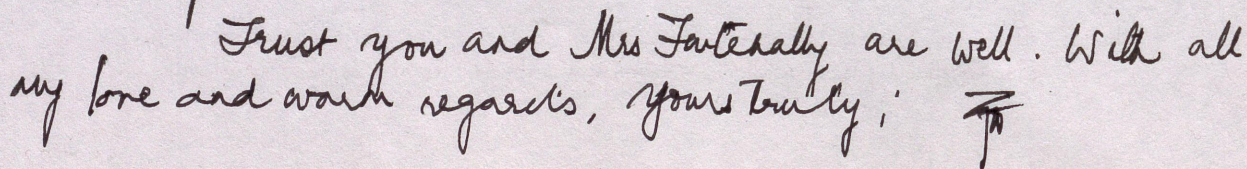 Trust you and Mrs Fazlehally are well. With all
my love and warm regards, Yours Truly,